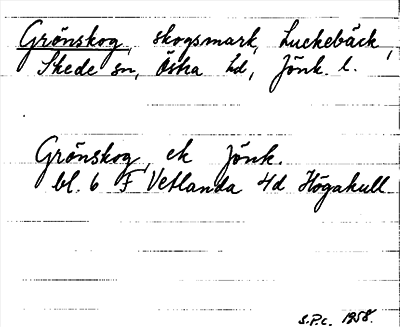 Grönskog, skogsmark, Luckebäck,
Skede sn, Östra hd, Jönk. l.
Grönskog, ek Jönk.
bl. 6 F Vetlanda 4d Högakull
S.P.c. 1958.